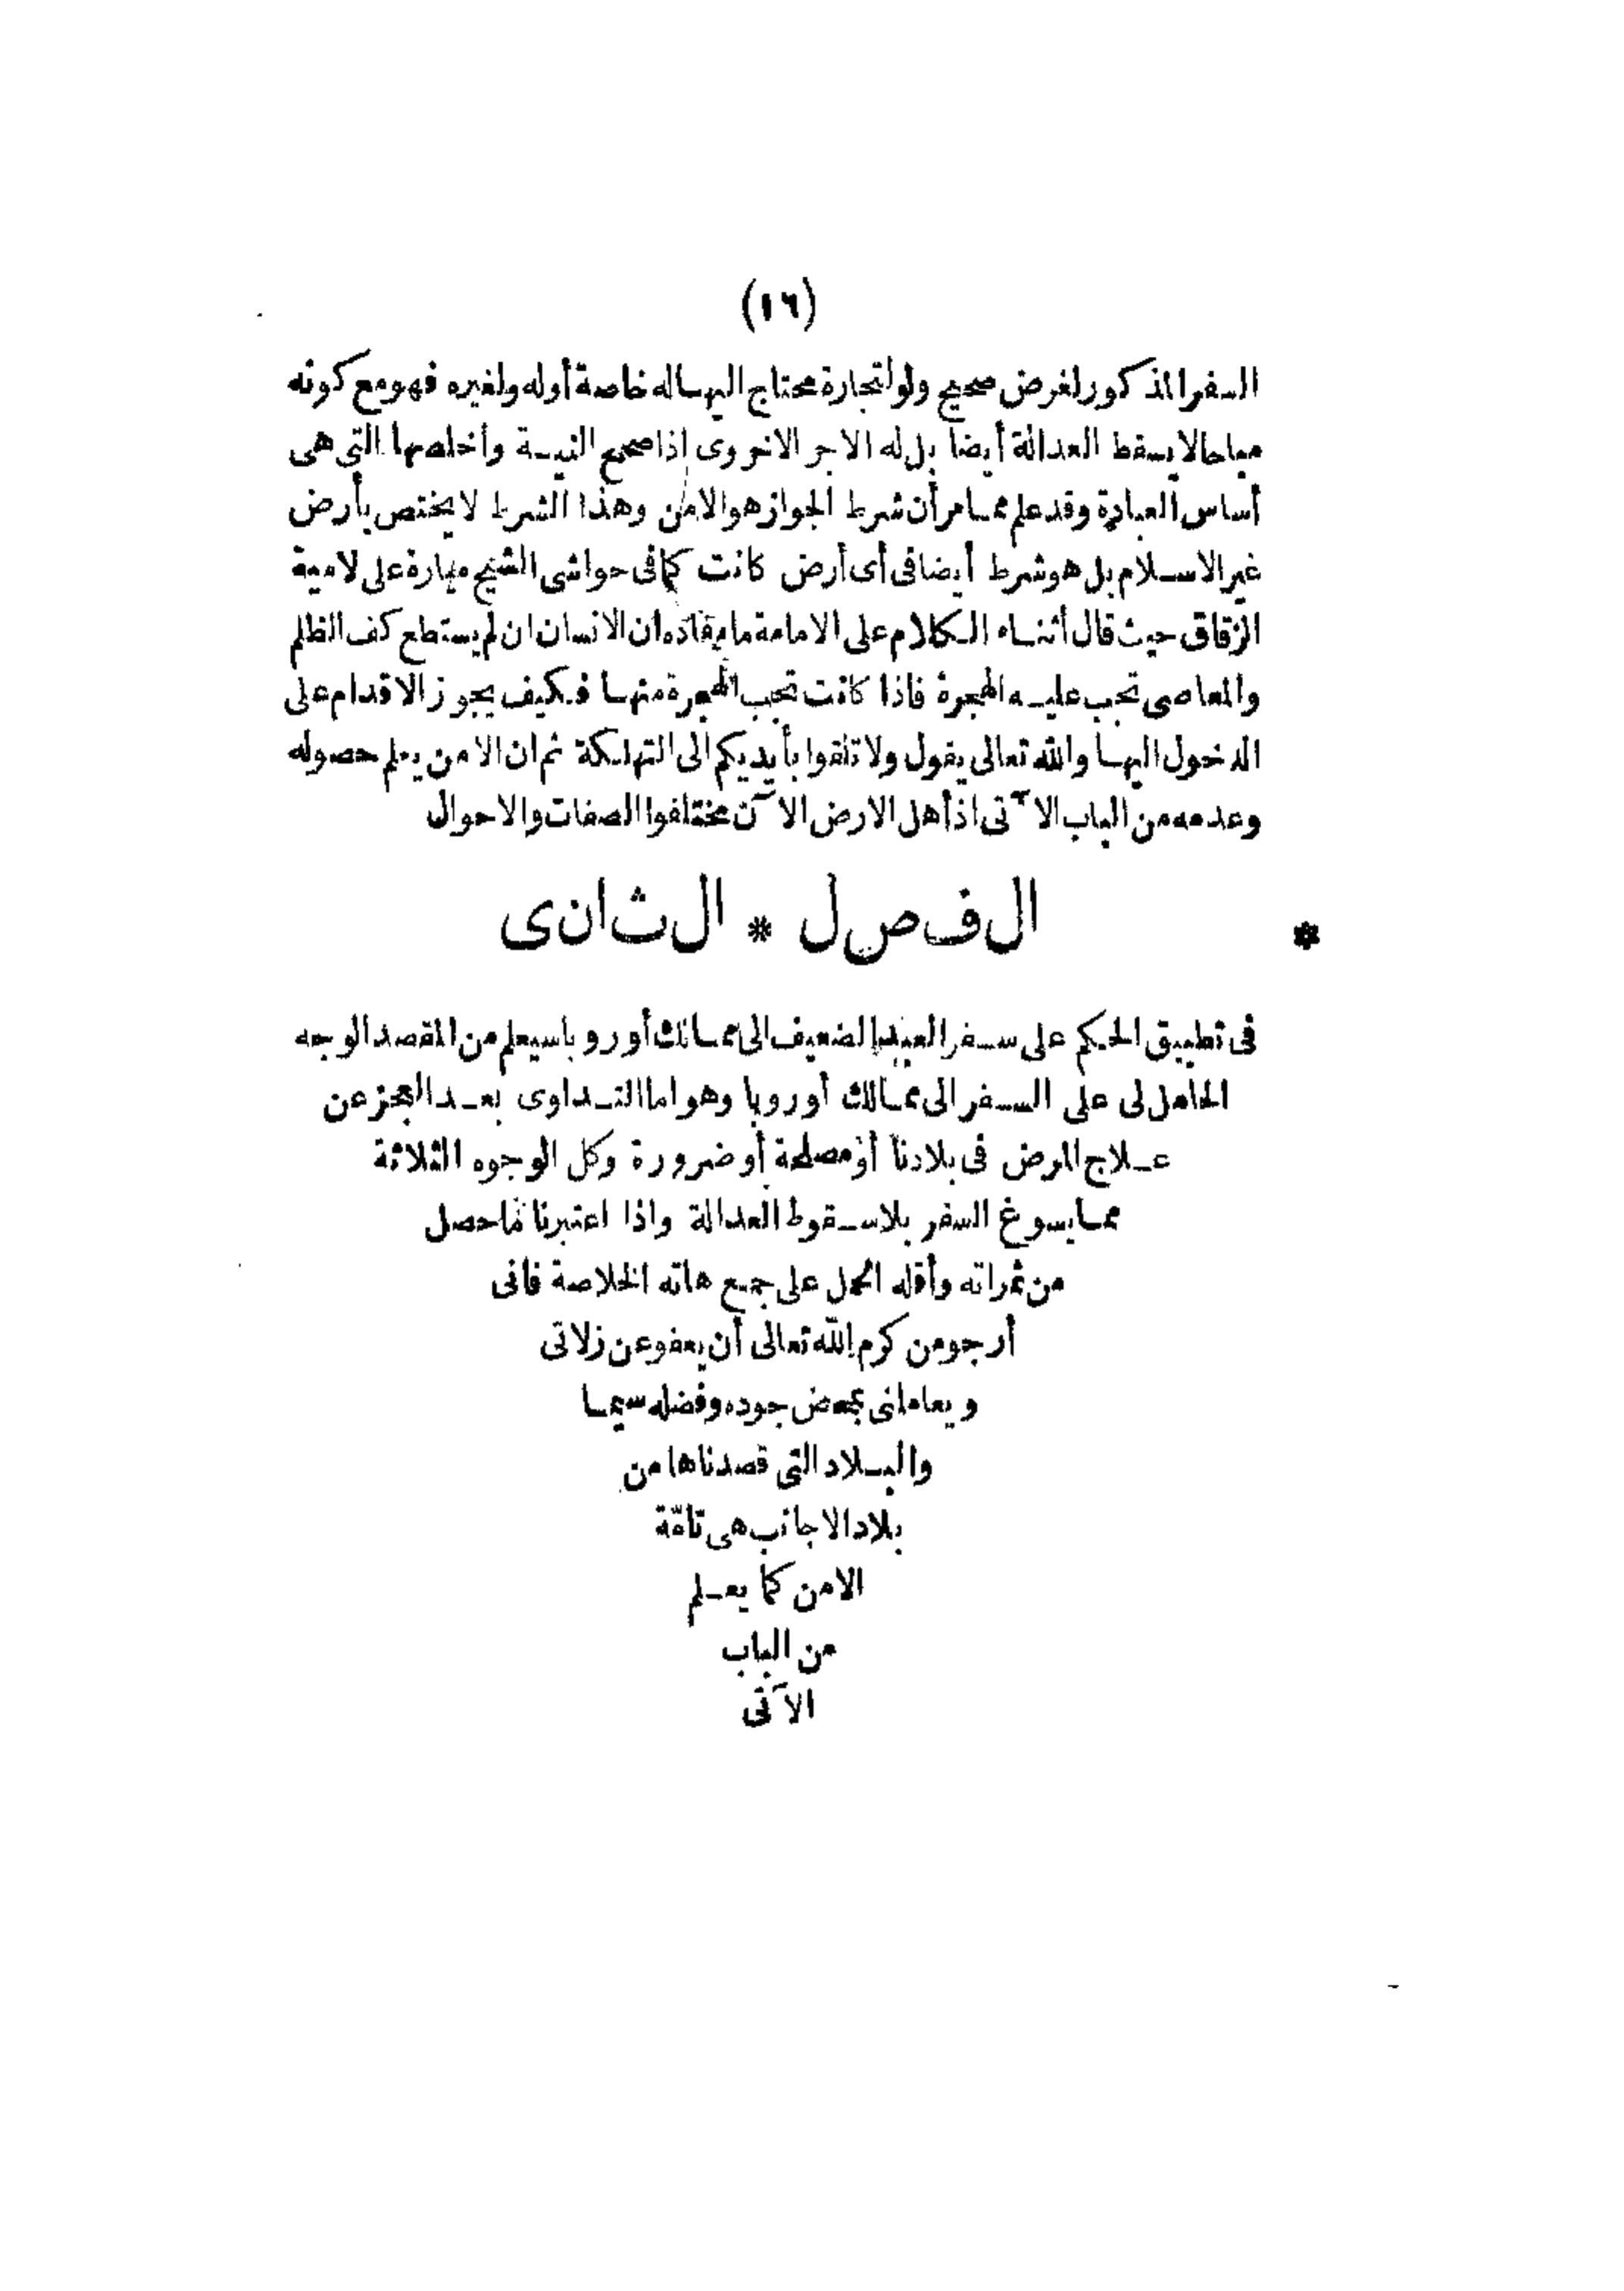 (١٦)
السفر المذكور لغرض صحيح ولو لتجارة محتاج اليها له خاصة أوله ولغيره فهو مع كونه
مباحا لا يسقط العدالة أيضا بل له الاجر الاخروى اذا صحح النية وأخلصها التى هى
أساس العبادة وقد علم مما مر أن شرط الجواز هو الامن وهذا الشرط لا يختص بأرض
غير الاسلام بل هو شرط أيضا فى أى أرض كانت كما فى حواشى الشيخ ميارة على لامية
الزقاق حيث قال أثناء الكلام على الامامة ما مفاده ان الانسان ان لم يستطع كف الظلم
والمعاصى تجب عليه الهجرة فاذا كانت تجب الهجرة منها فكيف يجوز الاقدام على
الدخول اليها والله تعالى يقول ولا تلقوا بأيديكم الى التهلكة ثم ان الامن يعلم حصوله
وعدمه من الباب الآتى اذ أهل الارض الآن مختلفوا الصفات والاحوال
* الفصل * الثانى
فى تطبيق الحكم على سفر العبد الضعيف الى ممالك أوروبا سيعلم من المقصد الوجه
الحامل لى على السفر الى ممالك أوروبا وهو اما التداوى بعد العجز عن
علاج المرض فى بلادنا أو مصلحة أو ضرورة وكل الوجوه الثلاثة
مما يسوغ السفر بلا سقوط العدالة واذا اعتبرنا ما حصل
من ثمراته وأقله الحمل على جمع هاته الخلاصة فانى
أرجو من كرم الله تعالى أن يعفو عن زلاتى
ويعاملنى بمحض جوده وفضله سيما
والبلاد التى قصدناها من
بلاد الاجانب هى تامّة
الامن كما يعلم
من الباب
الآتى